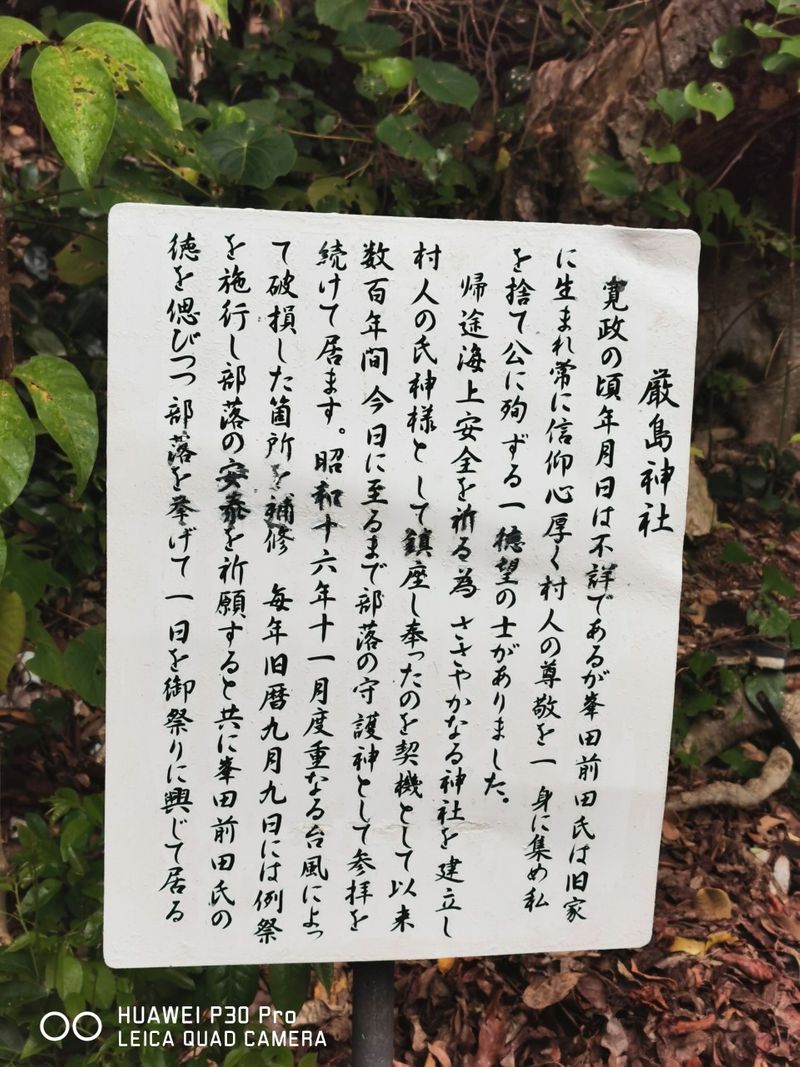 厳島神社
寛政の頃年月日は不詳であるが峯田前田氏は旧家
に生まれ常に信仰心厚く村人の尊敬を一身に集め私
を捨て公に殉ずる一徳望の士がありました。
帰途海上安全を祈る為 ささやかなる神社を建立し
村人の氏神様として鎮座し奉ったのを契機として以来
数百年間今日に至るまで部落の守護神として参拝を
続けて居ます。昭和十六年十一月度重なる台風によっ
て破損した箇所を補修 毎年旧暦九月九日には例祭
を施行し部落の安泰を祈願すると共に峯田前田氏の
徳を偲びつつ部落を挙げて一日を御祭りに興じて居る
HUAWEI P30 Pro
LEICA QUAD CAMERA